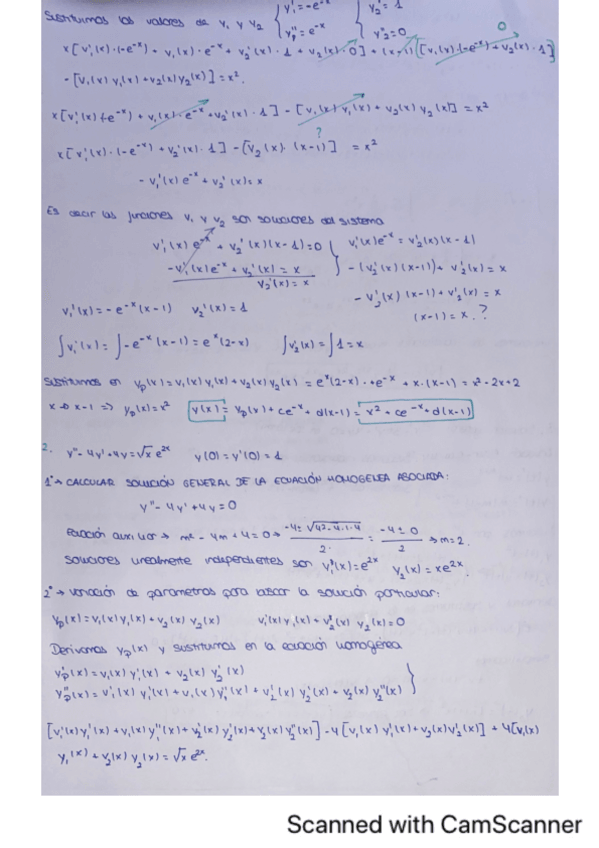 Sustituimos los valores de y₁ y y₂ { y₁' = -e⁻ˣ y₁'' = e⁻ˣ { y₂' = 1 y₂'' = 0
0
x[v₁'(x)·(-e⁻ˣ) + v₁(x)·e⁻ˣ + v₂'(x)·1 + v₂(x)·0] + (x-1)[v₁(x)·(-e⁻ˣ) + v₂(x)·1]
- [v₁(x) y₁(x) + v₂(x) y₂(x)] = x².
x[v₁'(x)(-e⁻ˣ) + v₁(x)·e⁻ˣ + v₂'(x)·1] - [v₁(x) y₁(x) + v₂(x) y₂(x)] = x²
?
x[v₁'(x)·(-e⁻ˣ) + v₂'(x)·1] - [v₂(x)·(x-1)] = x²
- v₁'(x) e⁻ˣ + v₂'(x) = x
Es decir las funciones v₁ y v₂ son soluciones del sistema
v₁'(x) e⁻ˣ + v₂'(x)(x-1) = 0 } v₁'(x) e⁻ˣ = v₂'(x)(x-1)
-v₁'(x) e⁻ˣ + v₂'(x) = x - (v₂'(x)(x-1)) + v₂'(x) = x
v₂'(x) = x - v₂'(x)(x-1) + v₂'(x) = x
v₁'(x) = -e⁻ˣ(x-1) v₂'(x) = 1 (x-1) = x ?
∫v₁'(x) = ∫-e⁻ˣ(x-1) = eˣ(2-x) ∫v₂'(x) = ∫1 = x
Sustituimos en yp(x) = v₁(x) y₁(x) + v₂(x) y₂(x) = eˣ(2-x)·+e⁻ˣ + x·(x-1) = x² - 2x + 2
x → x-1 => yp(x) = x² y(x) = yp(x) + ce⁻ˣ + d(x-1) = x² + ce⁻ˣ + d(x-1)
2. y'' - 4y' + 4y = √x e²ˣ y(0) = y'(0) = 1
1º → CALCULAR SOLUCIÓN GENERAL DE LA ECUACIÓN HOMOGENEA ASOCIADA:
y'' - 4y' + 4y = 0
Ecuación auxiliar → m² - 4m + 4 = 0 → (-4 ± √(4²-4·1·4))/2 = (-4 ± 0)/2 → m = 2.
soluciones linealmente independientes son y₁(x) = e²ˣ y₂(x) = xe²ˣ.
2º → variación de parámetros para buscar la solución particular:
yp(x) = v₁(x) y₁(x) + v₂(x) y₂(x) v₁'(x) y₁(x) + v₂'(x) y₂(x) = 0
Derivamos yp(x) y sustituimos en la ecuación homogénea
yp'(x) = v₁(x) y₁'(x) + v₂(x) y₂'(x)
yp''(x) = v₁'(x) y₁'(x) + v₁(x) y₁''(x) + v₂'(x) y₂'(x) + v₂(x) y₂''(x) }
[v₁'(x) y₁'(x) + v₁(x) y₁''(x) + v₂'(x) y₂'(x) + v₂(x) y₂''(x)] - 4[v₁(x) y₁'(x) + v₂(x) y₂'(x)] + 4[v₁(x)
y₁(x) + v₂(x) y₂(x) = √x e²ˣ.
Scanned with CamScanner